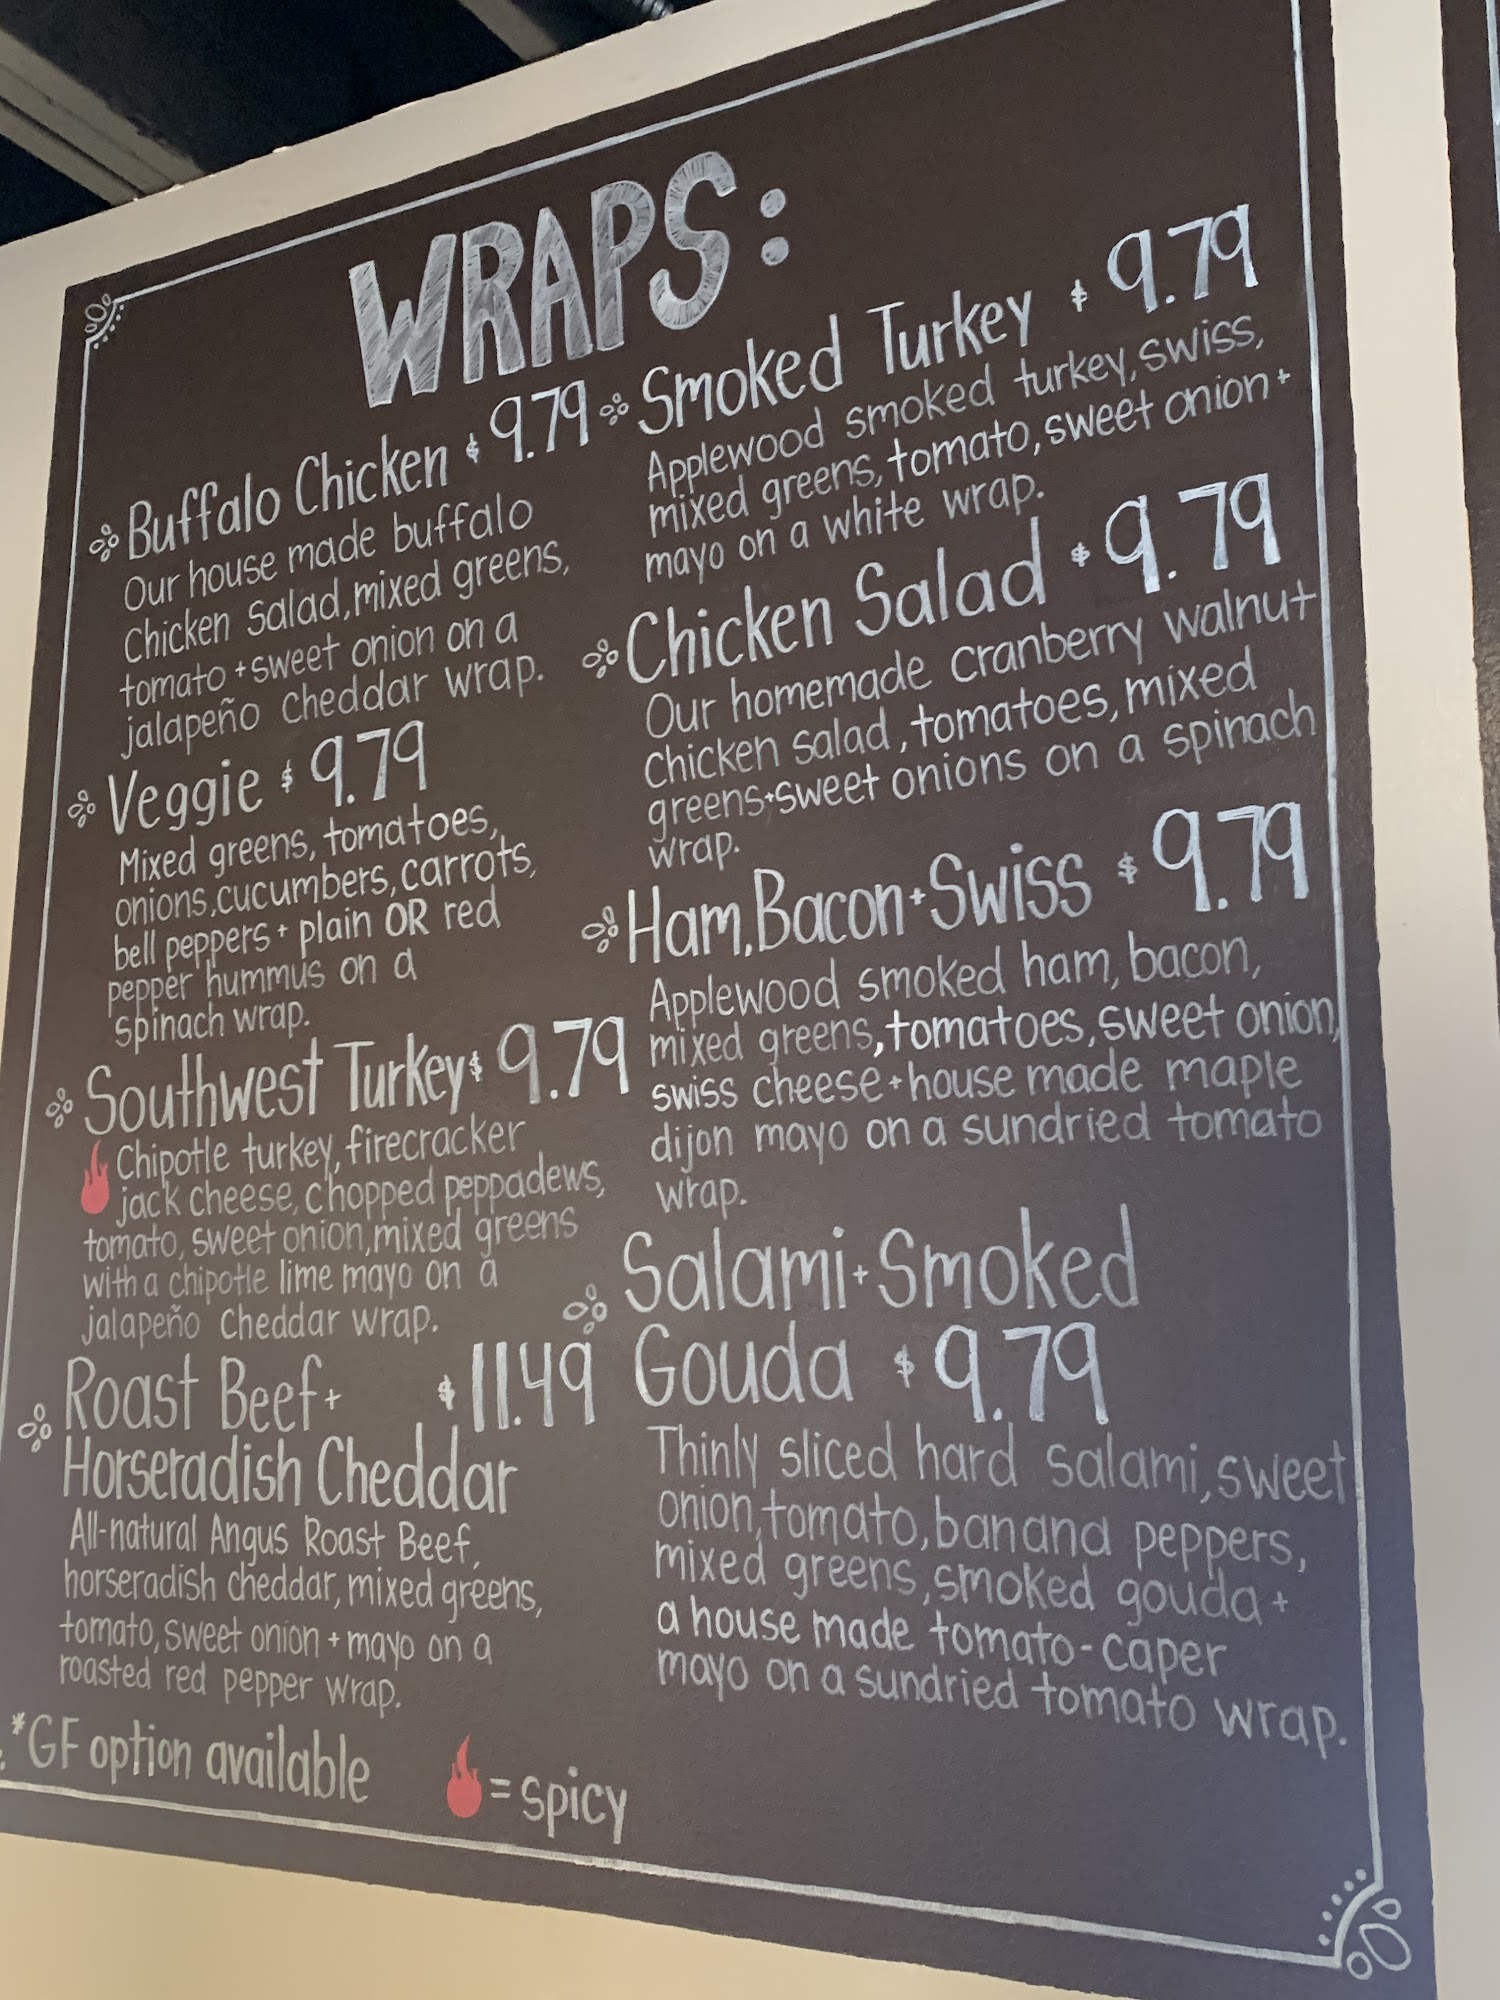 WRAPS:
Buffalo Chicken $9.79
Our house made buffalo
Chicken Salad, mixed greens,
tomato + sweet onion on a
jalapeño cheddar wrap.
Veggie $9.79
Mixed greens, tomatoes,
onions, cucumbers, carrots,
bell peppers + plain OR red
pepper hummus on a
spinach wrap.
Southwest Turkey $9.79
Chipotle turkey, firecracker
jack cheese, chopped peppadews,
tomato, sweet onion, mixed greens
with a chipotle lime mayo on a
jalapeño cheddar wrap.
Roast Beef + $11.49
Horseradish Cheddar
All-natural Angus Roast Beef,
horseradish cheddar, mixed greens,
tomato, sweet onion + mayo on a
roasted red pepper wrap.
*GF option available
= spicy
Smoked Turkey $9.79
Applewood smoked turkey, swiss,
mixed greens, tomato, sweet onion +
mayo on a white wrap.
Chicken Salad $9.79
Our homemade cranberry walnut
chicken salad, tomatoes, mixed
greens + sweet onions on a spinach
wrap.
Ham, Bacon + Swiss $9.79
Applewood smoked ham, bacon,
mixed greens, tomatoes, sweet onion,
swiss cheese + house made maple
dijon mayo on a sundried tomato
wrap.
Salami + Smoked
Gouda $9.79
Thinly sliced hard salami, sweet
onion, tomato, banand peppers,
mixed greens, smoked gouda +
a house made tomato-caper
mayo on a sundried tomato wrap.